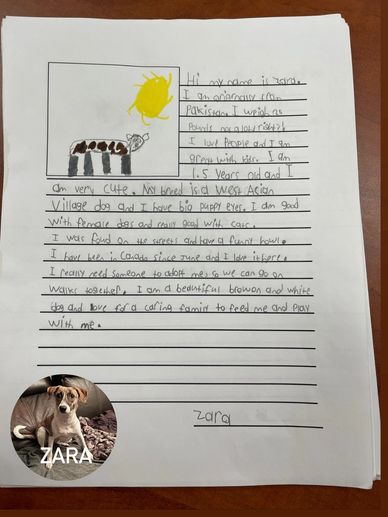 Hi my name is zara.
I am originally from
Pakistan. I weigh 28
Pounds not a lot right?!
I love People and I am
great with kids. I am
1.5 years old and I
am very cute. My breed is a West Asian
Village dog and I have big puppy eyes. I am good
with female dogs and really good with cats.
I was foud on the streets and have a funny howl.
I have been in Canada since June and I love it here.
I really need someone to adopt me, so we can go on
walks together. I am a beautiful browon and white
dog and love for a caring family to feed me and play
with me.
zara
ZARA